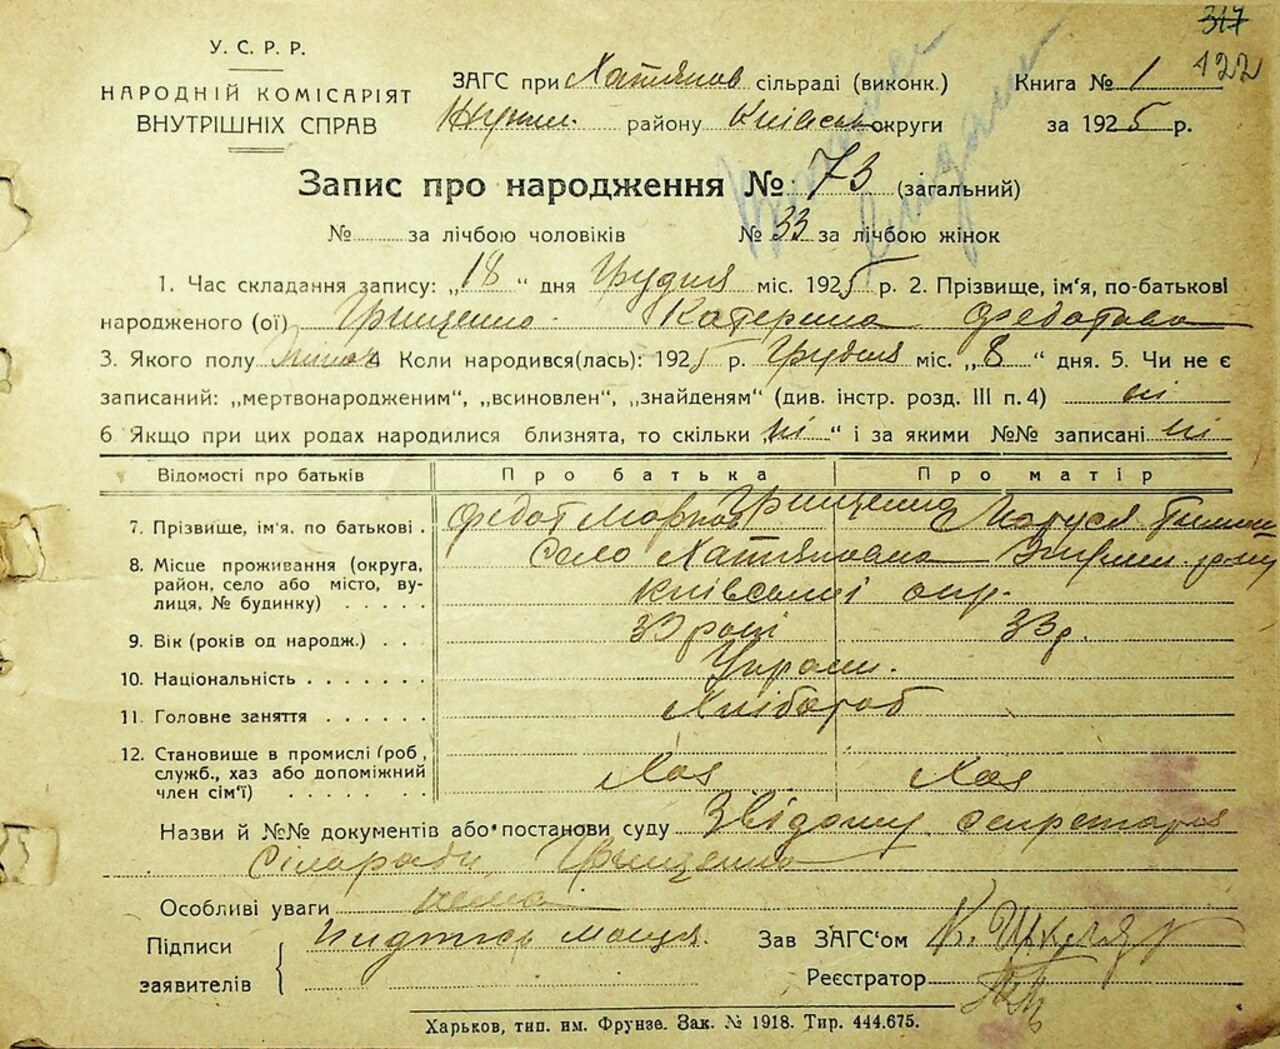 317
122
У. С. Р. Р.
НАРОДНІЙ КОМІСАРІЯТ
ВНУТРІШНІХ СПРАВ
ЗАГС при Хатянов сільраді (виконк.)
району Київськ округи
Книга № 1
за 1925 р.
Запис про народження № 73 (загальний)
№ за лічбою чоловіків № 33 за лічбою жінок
1. Час складання запису: „18“ дня Грудня міс. 1925 р. 2. Прізвище, ім‘я, по-батькові
народженого (ої) Грищенко Катерина Федотова
3. Якого полу 4 Коли народився(лась): 1925 р. Грудня міс. „8“ дня. 5. Чи не є
записаний: „мертвонародженим“, „всиновлен“, „знайденям“ (див. інстр. розд. III п. 4) ні
6 Якщо при цих родах народилися близнята, то скільки „ні“ і за якими №№ записані ні
Відомості про батьків Про батька Про матір
7. Прізвище, ім‘я, по батькові . Федот Марков Грищенко Маруся
8. Місце проживання (округа, район, село або місто, вулиця, № будинку) . . . . . село
Київської окр.
9. Вік (років од народж.) . . . 33 рокі 33 р.
10. Національність . . . . . . . Украин.
11. Головне заняття . . . . . . Хлібороб
12. Становище в промислі (роб, служб., хаз або допоміжний член сім‘ї) . . . . . . Хоз Хоз
Назви й №№ документів або постанови суду Звідому секретаря
сіларади, Грищенко
Особливі уваги нема
Підписи
заявителів
Пидпись
Зав ЗАГС‘ом К. Шкляр
Реєстратор
Харьков, тип. им. Фрунзе. Зак. № 1918. Тир. 444.675.